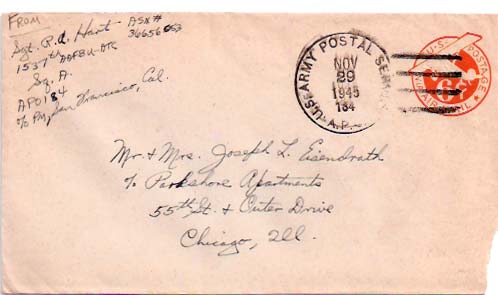 FROM
Sgt. R.A. Hart ASN#
36656
1537th AAFBU-ATC
Sq. A.
APO 184
c/o PM, San Francisco, Cal.
U.S. ARMY POSTAL
NOV
29
1945
184
A.P.
U.S. POSTAGE
6c
AIR
Mr. + Mrs. Joseph L. Eisendrath
c/o Parkshore Apartments
55th St. + Outer Drive
Chicago, Ill.